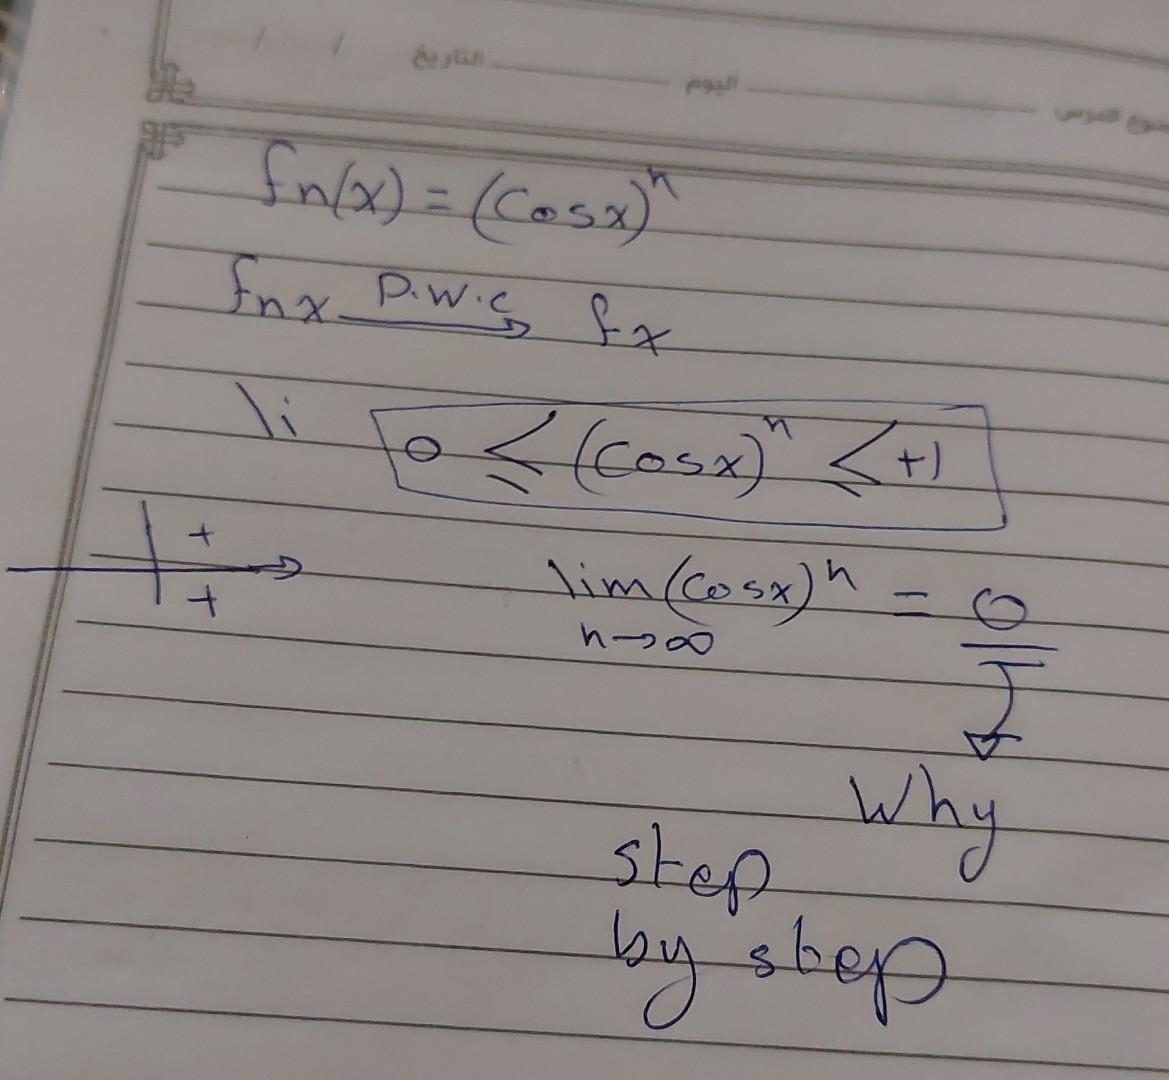 التاريخ / /
اليوم
fn(x) = (Cosx)^n
fnx P.W.C → fx
li 0 ≤ (Cosx)^n ≤ +1
+
+
lim (Cosx)^n = 0
n→∞
Why
step
by step